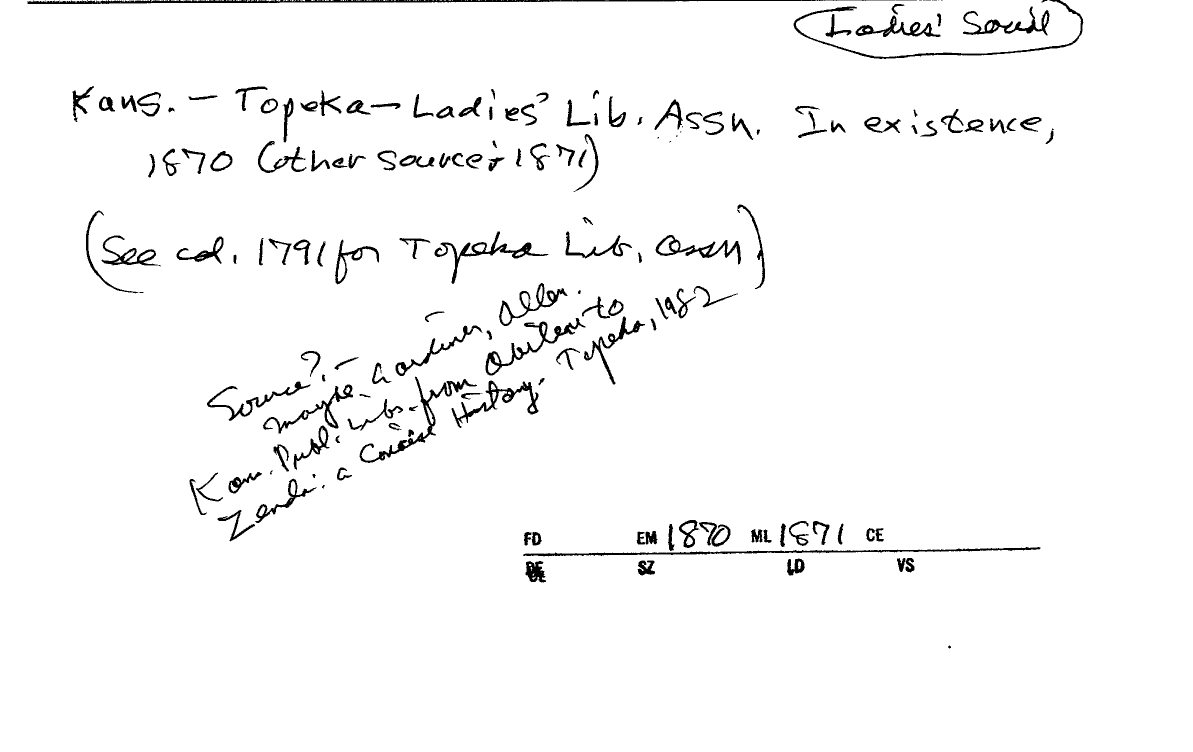 Ladies' Social
Kans. – Topeka – Ladies' Lib. Assn. In existence,
1870 (other source: 1871)
(See cd. 1791 for Topeka Lib. assn.)
Source? –
maybe Gardiner, Allen.
Kan. Publ. Libs. from Abilene to
Zenda: a Concise History. Topeka, 1982
FD EM 1870 ML 1871 CE
SZ LD VS